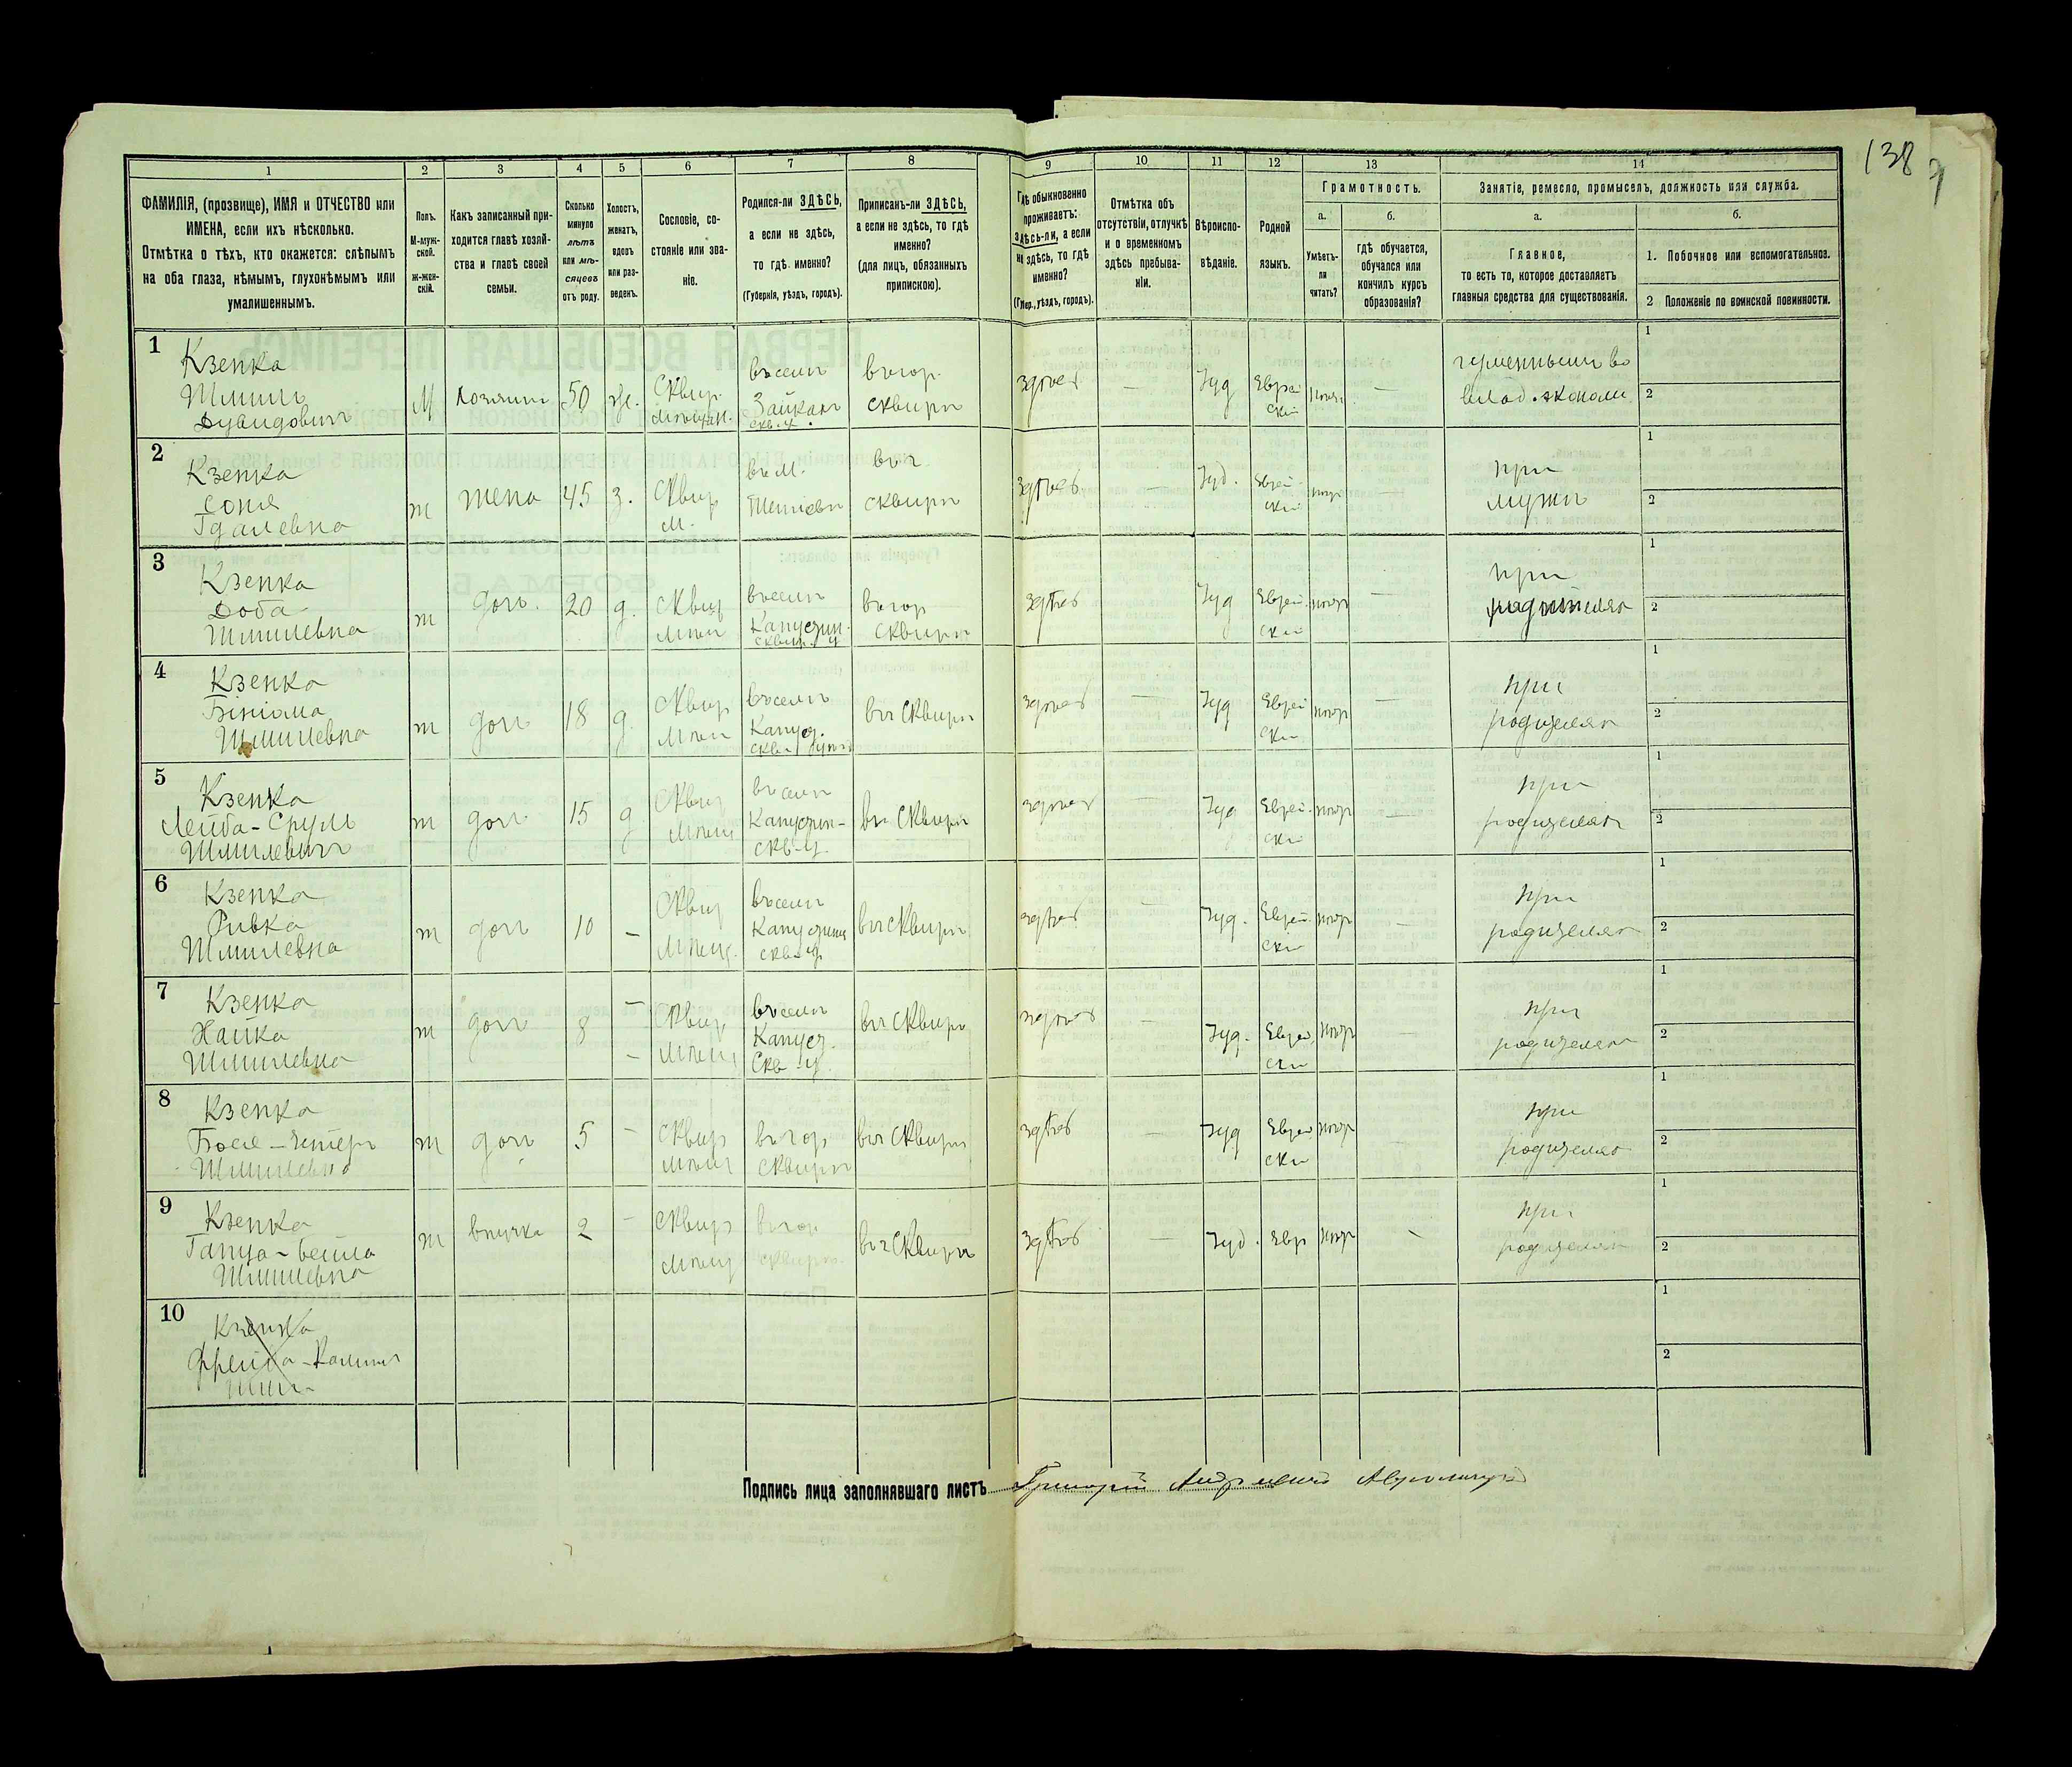 138
1 2 3 4 5 6 7 8 9 10 11 12 13 14
ФАМИЛІЯ, (прозвище), ИМЯ и ОТЧЕСТВО или
ИМЕНА, если ихъ нѣсколько.
Отмѣтка о тѣхъ, кто окажется: слѣпымъ
на оба глаза, нѣмымъ, глухонѣмымъ или
умалишеннымъ.
Полъ.
М-муж-
ской.
ж-жен-
скій.
Какъ записанный при-
ходится главѣ хозяй-
ства и главѣ своей
семьи.
Сколько
минуло
лѣтъ
или мѣ-
сяцевъ
отъ роду.
Холостъ,
женатъ,
вдовъ
или раз-
веденъ.
Сословіе, со-
стояніе или зва-
ніе.
Родился-ли ЗДѢСЬ,
а если не здѣсь,
то гдѣ именно?
(Губернія, уѣздъ, городъ).
Приписанъ-ли ЗДѢСЬ,
а если не здѣсь, то гдѣ
именно?
(для лицъ, обязанныхъ
припискою).
Гдѣ обыкновенно
проживаетъ:
здѣсь-ли, а если
не здѣсь, то гдѣ
именно?
(Губер., уѣздъ, городъ).
Отмѣтка объ
отсутствіи, отлучкѣ
и о временномъ
здѣсь пребыва-
ніи.
Вѣроиспо-
вѣданіе.
Родной
языкъ.
Грамотность.
а.
Умѣетъ-
ли
читать?
б.
гдѣ обучается,
обучался или
кончилъ курсъ
образованія?
Занятіе, ремесло, промыселъ, должность или служба.
а.
Главное,
то есть то, которое доставляетъ
главныя средства для существованія.
б.
1. Побочное или вспомогательное.
2 Положеніе по воинской повинности.
1
Кзепка
Шмиль
Дувидовичъ
М
хозяинъ
50
же.
Сквир.
мѣщан.
въ селѣ
скв. у.
въ гор.
сквирѣ
здѣсь
—
Іуд
Еврей
ски
—
1
2
2
Кзепка
Соня
Гдалевна
ж
жена
45
з.
Сквир
м.
въ м.
Тетіевѣ
въ г.
сквирѣ
здѣсь
—
Іуд.
Еврей
ски
негр
—
при
мужѣ
1
2
3
Кзепка
Доба
Шмилевна
ж
доч.
20
д.
Сквир
мѣщ
въ селѣ
Капустин.
сквир. у
въ гор
сквирѣ
здѣсь
Іуд
Еврей.
ски
негр
—
при
родителях
1
2
4
Кзепка
Шмилевна
ж
доч
18
д.
Сквир
мѣщ
въ селѣ
Капуст.
въ г Сквирѣ
здѣсь
—
Іуд
Еврей
ски
негр
—
при
родителях
1
2
5
Кзепка
Лейба-Сруль
Шмилевичъ
ж
доч
15
д
Сквир
мѣщ
въ селѣ
Капустин-
скв-у.
въ г Сквирѣ
здѣсь
—
Іуд
Еврей.
ски
негр
—
при
родителях
1
2
6
Кзепка
Ривка
Шмилевна
ж
доч
10
—
Сквир
мѣщ.
въ селѣ
скв-у
въ г Сквирѣ
здѣсь
—
Іуд.
Еврей.
ски
негр
—
при
родителях
1
2
7
Кзепка
Хайка
Шмилевна
ж
доч
8
—
Сквир
мѣщ
въ селѣ
Капуст.
Скв-у.
въ г Сквирѣ
здѣсь
—
Іуд.
Еврей
ски
негр
—
при
родителях
1
2
8
Кзепка
Шмилевна
ж
доч
5
—
Сквир
мѣщ
въ гор
сквирѣ
въ г Сквирѣ
здѣсь
—
Іуд
Еврей
ски
негр
при
родителях
1
2
9
Кзепка
Шмилевна
ж
внучка
2
—
Сквир
мѣщ
въ гор
сквирѣ
въ г Сквирѣ
здѣсь
—
Іуд.
Евр
негр
—
при
родителях
1
2
10
Кзепка
1
2
Подпись лица заполнявшаго листъ Григорій